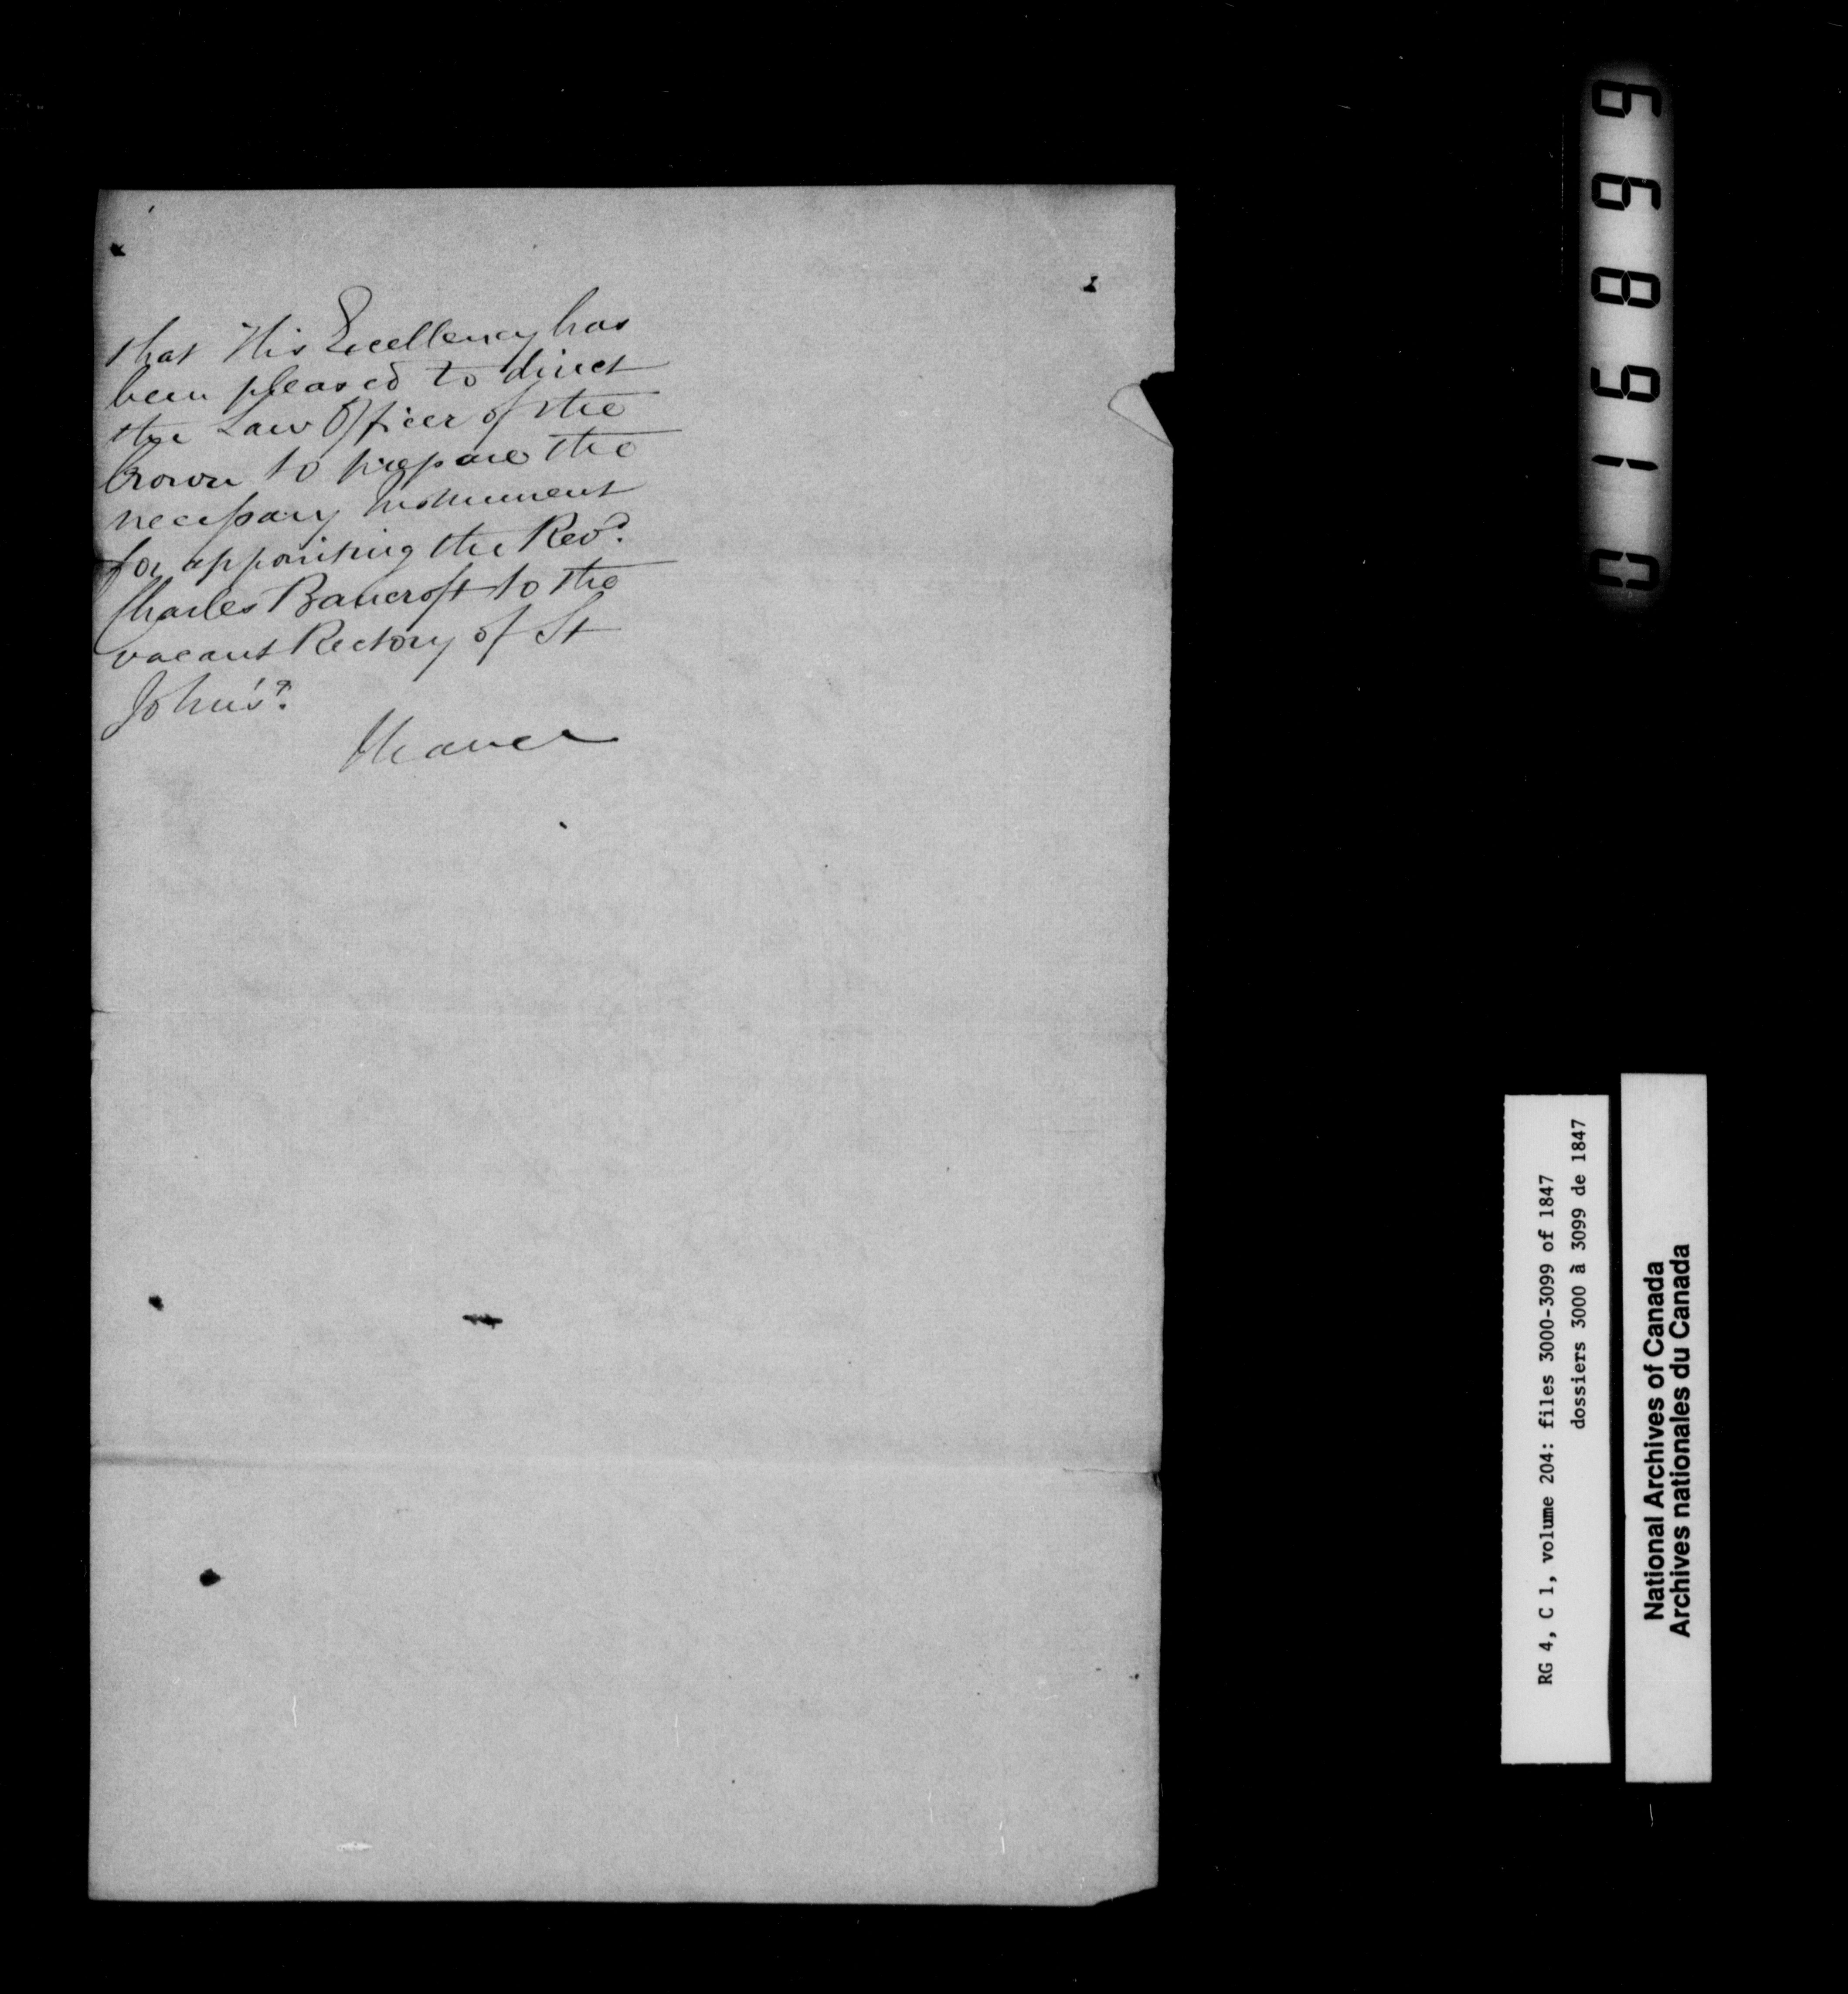 that His Excellency has
been pleased to direct
the Law Officer of the
Crown to prepare the
necessary Instrument
for appointing the Revd.
Charles Bancroft to the
vacant Rectory of St
John's.
I have &c
016899
RG 4, C 1, volume 204: files 3000-3099 of 1847
dossiers 3000 à 3099 de 1847
National Archives of Canada
Archives nationales du Canada